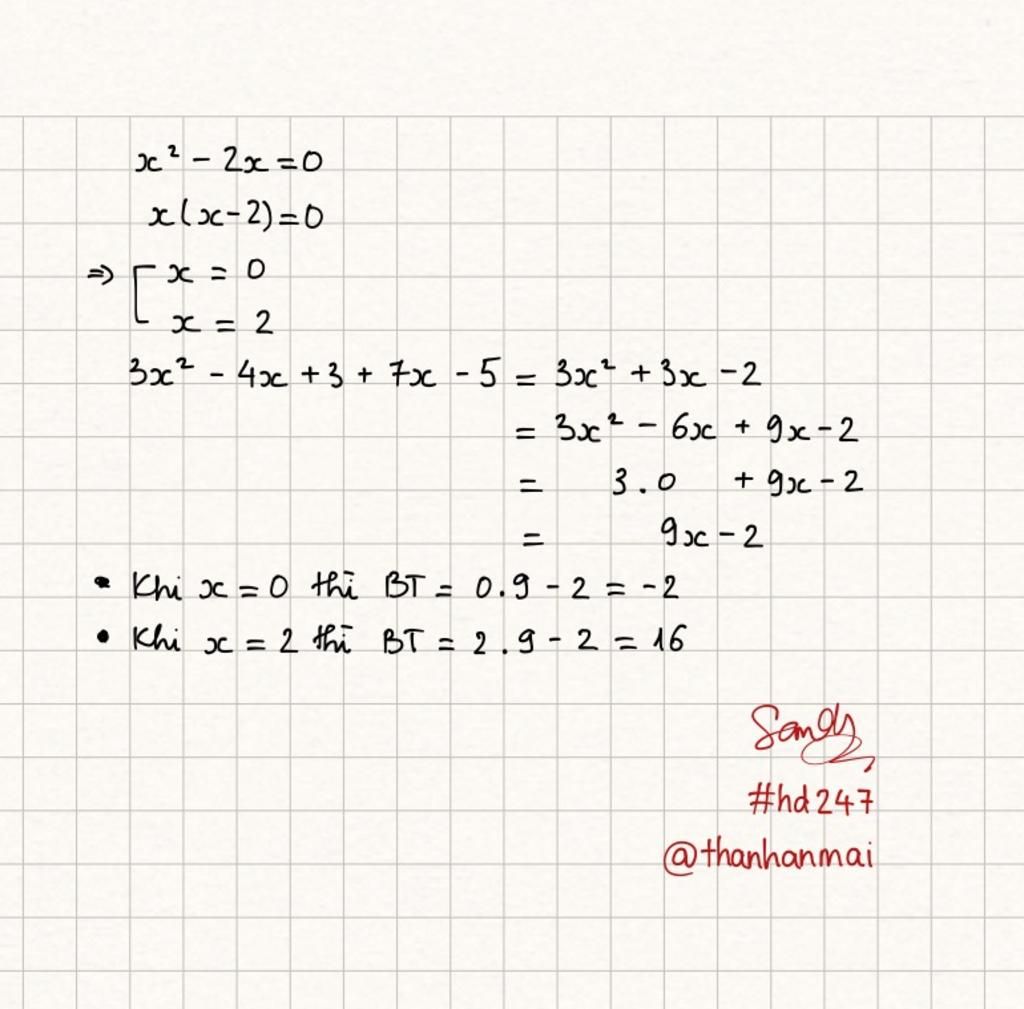 x² - 2x = 0
x(x-2) = 0
⇒ [ x = 0
x = 2
3x² - 4x + 3 + 7x - 5 = 3x² + 3x - 2
= 3x² - 6x + 9x - 2
= 3.0 + 9x - 2
= 9x - 2
• Khi x = 0 thì BT = 0.9 - 2 = -2
• Khi x = 2 thì BT = 2.9 - 2 = 16
Sandy
#hd247
@thanhanmai